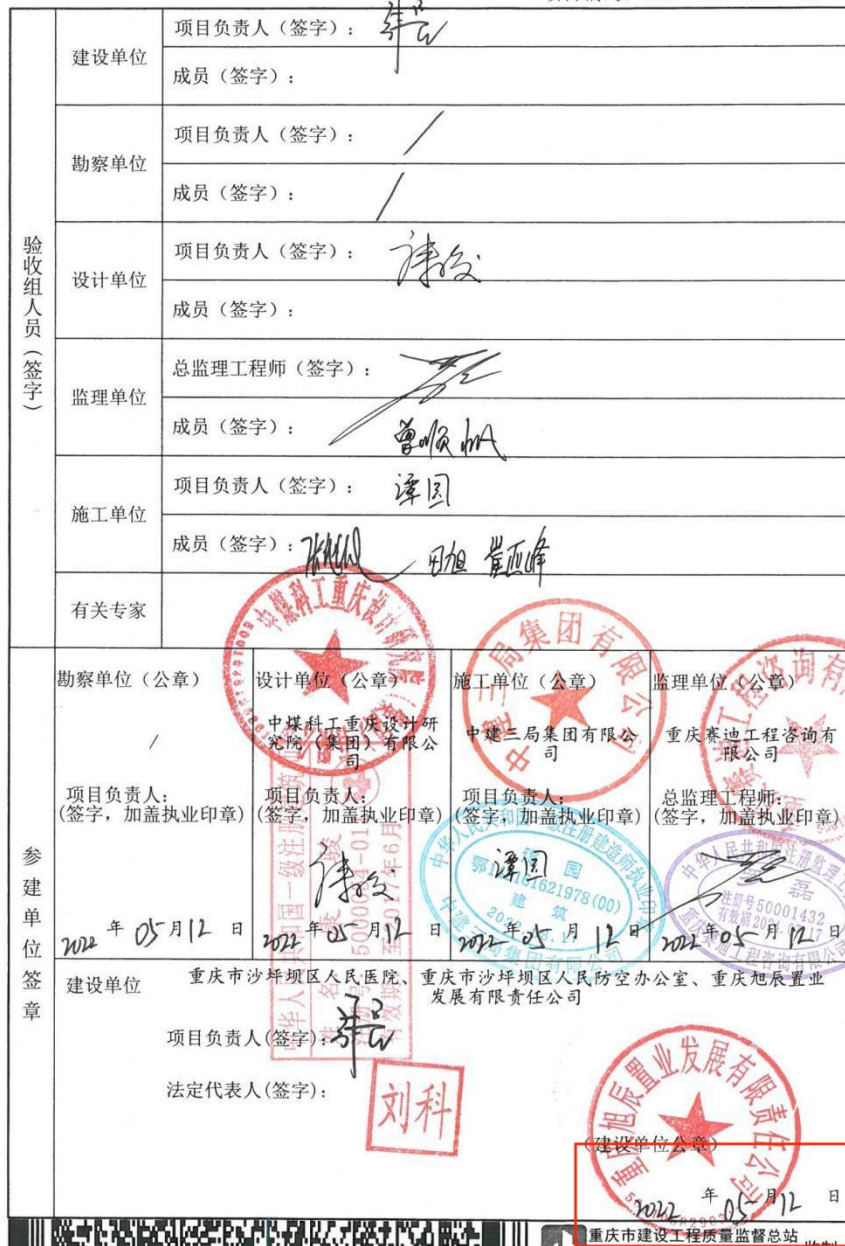 验收组人员(签字)
建设单位
项目负责人(签字):
成员(签字):
勘察单位
项目负责人(签字): /
成员(签字): /
设计单位
项目负责人(签字):
成员(签字):
监理单位
总监理工程师(签字):
成员(签字): 曾顺
施工单位
项目负责人(签字): 谭园
成员(签字): 田旭 崔亚峰
有关专家
参建单位签章
勘察单位(公章)
/
项目负责人:
(签字,加盖执业印章)
2022 年 05 月 12 日
设计单位(公章)
中煤科工重庆设计研
究院(集团)有限公
司
项目负责人:
(签字,加盖执业印章)
2022 年 05 月 12 日
中煤科工重庆设计研究院
施工单位(公章)
中建三局集团有限公
司
项目负责人:
(签字,加盖执业印章)
谭园
2022 年 05 月 12 日
中建三局集团有限公司
建筑
监理单位(公章)
重庆赛迪工程咨询有
限公司
总监理工程师:
(签字,加盖执业印章)
2022 年 05 月 12 日
注册号50001432
建设单位
重庆市沙坪坝区人民医院、重庆市沙坪坝区人民防空办公室、重庆旭辰置业
发展有限责任公司
项目负责人(签字):
法定代表人(签字):
刘科
重庆旭辰置业发展有限责任公司
(建设单位公章)
2022 年 05 月 12 日
重庆市建设工程质量监督总站
监制